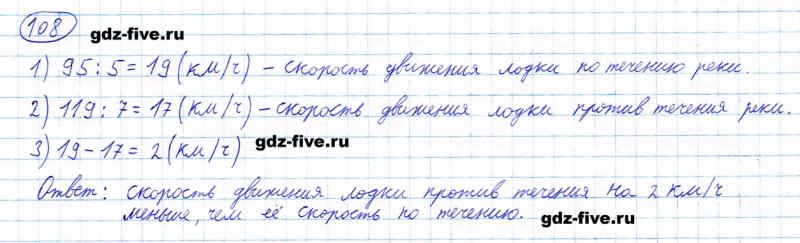 108 gdz-five.ru gdz-five.ru
1) 95 : 5 = 19 (км/ч) – скорость движения лодки по течению реки.
2) 119 : 7 = 17 (км/ч) – скорость движения лодки против течения реки.
3) 19 – 17 = 2 (км/ч) gdz-five.ru
Ответ: скорость движения лодки против течения на 2 км/ч
меньше, чем её скорость по течению. gdz-five.ru